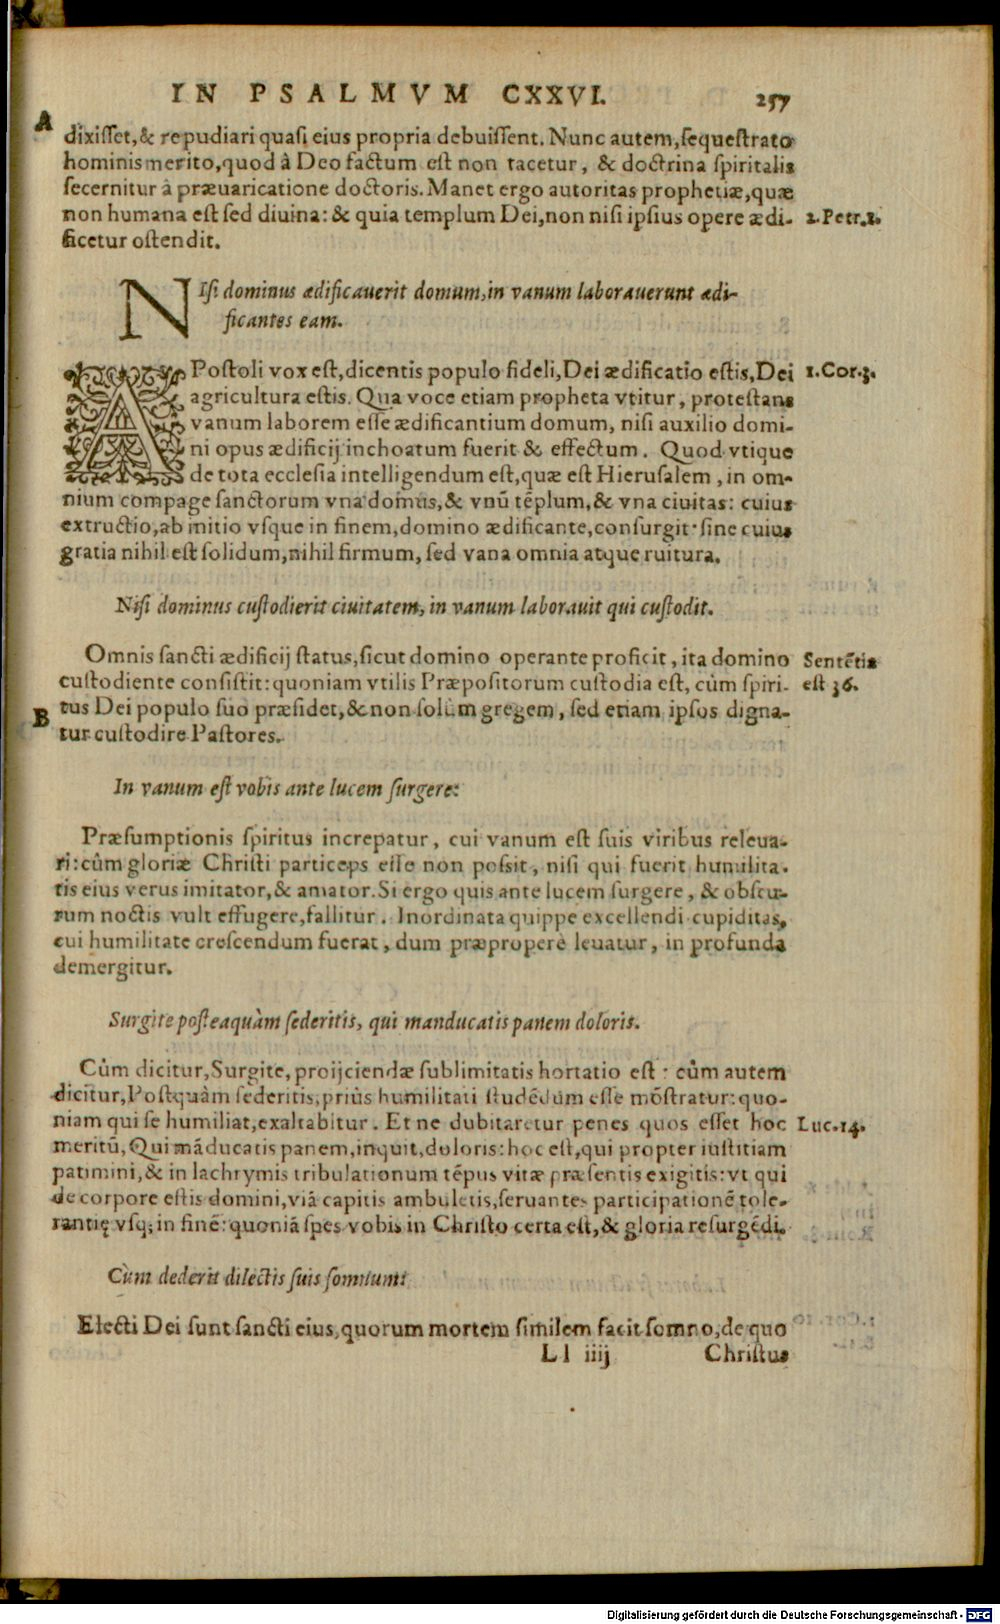 IN PSALMVM CXXVI. 257
A
dixisset,& repudiari quasi eius propria debuissent. Nunc autem,sequestrato
hominis merito,quod à Deo factum est non tacetur, & doctrina spiritalis
secernitur à præuaricatione doctoris. Manet ergo autoritas prophetiæ,quæ
non humana est sed diuina: & quia templum Dei,non nisi ipsius opere ædi- 2.Petr.1.
ficetur ostendit.
NIsi dominus ædificauerit domum,in vanum laborauerunt ædi-
ficantes eam.
APostoli vox est,dicentis populo fideli,Dei ædificatio estis,Dei 1.Cor.3.
agricultura estis. Qua voce etiam propheta vtitur, protestans
vanum laborem esse ædificantium domum, nisi auxilio domi-
ni opus ædificij inchoatum fuerit & effectum. Quod vtique
de tota ecclesia intelligendum est,quæ est Hierusalem, in om-
nium compage sanctorum vna domus,& vnū tēplum,& vna ciuitas: cuius
extructio,ab initio vsque in finem,domino ædificante,consurgit: sine cuius
gratia nihil est solidum,nihil firmum, sed vana omnia atque ruitura.
Nisi dominus custodierit ciuitatem, in vanum laborauit qui custodit.
Omnis sancti ædificij status,sicut domino operante proficit, ita domino Sentētia
custodiente consistit: quoniam vtilis Præpositorum custodia est, cùm spiri- est 36.
B
tus Dei populo suo præsidet,& non solùm gregem, sed etiam ipsos digna-
tur custodire Pastores.
In vanum est vobis ante lucem surgere:
Præsumptionis spiritus increpatur, cui vanum est suis viribus releua-
ri: cùm gloriæ Christi particeps esse non possit, nisi qui fuerit humilita-
tis eius verus imitator,& amator. Si ergo quis ante lucem surgere, & obscu-
rum noctis vult effugere,fallitur. Inordinata quippe excellendi cupiditas,
cui humilitate crescendum fuerat, dum præpropere leuatur, in profunda
demergitur.
Surgite posteaquàm sederitis, qui manducatis panem doloris.
Cùm dicitur,Surgite,proijciendæ sublimitatis hortatio est: cùm autem
dicitur,Postquàm sederitis,priùs humilitati studēdum esse mōstratur: quo-
niam qui se humiliat,exaltabitur. Et ne dubitaretur penes quos esset hoc Luc.14.
meritū, Qui māducatis panem,inquit,doloris: hoc est,qui propter iustitiam
patimini,& in lachrymis tribulationum tēpus vitæ præsentis exigitis: vt qui
de corpore estis domini,viā capitis ambuletis,seruantes participationē tole-
rantię vsq; in finē: quoniā spes vobis in Christo certa est,& gloria resurgēdi.
Cùm dederit dilectis suis somnium:
Electi Dei sunt sancti eius,quorum mortem similem facit somno,de quo
Ll iiij Christus
Digitalisierung gefördert durch die Deutsche Forschungsgemeinschaft - DFG